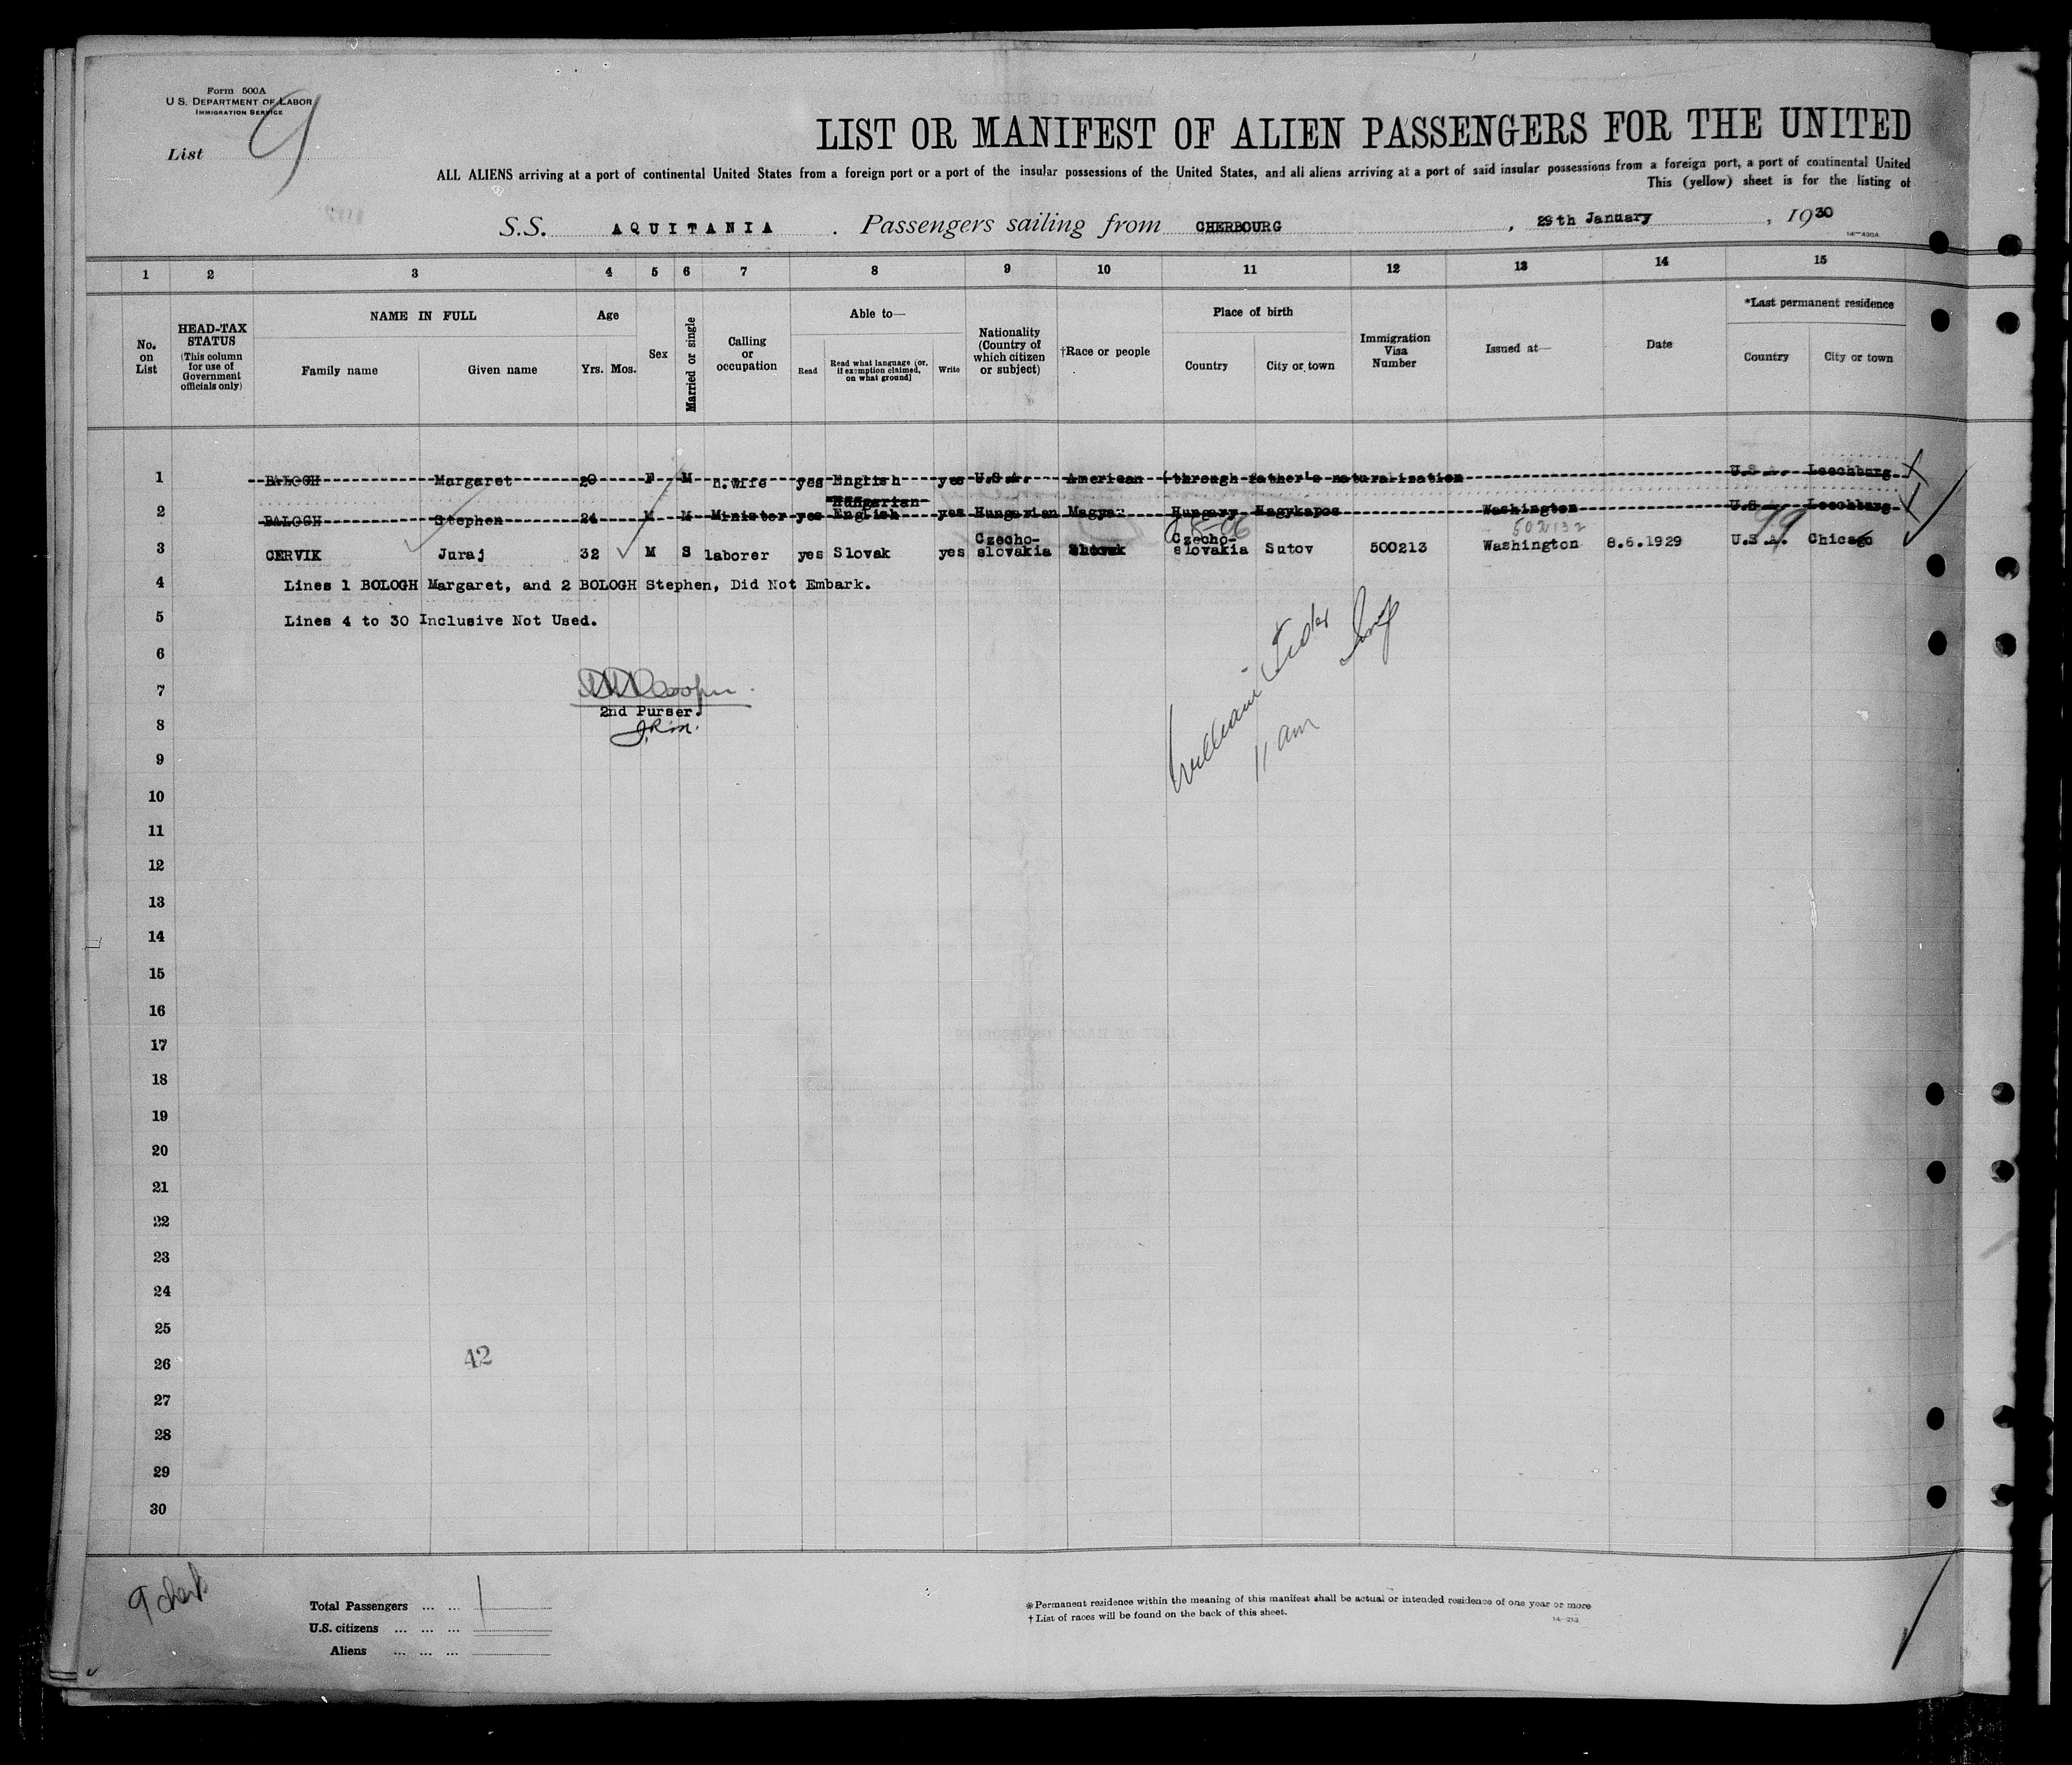 Form 500A
U. S. DEPARTMENT OF LABOR
IMMIGRATION SERVICE
List 9
LIST OR MANIFEST OF ALIEN PASSENGERS FOR THE UNITED
ALL ALIENS arriving at a port of continental United States from a foreign port or a port of the insular possessions of the United States, and all aliens arriving at a port of said insular possessions from a foreign port, a port of continental United
This (yellow) sheet is for the listing of
S.S. AQUITANIA . Passengers sailing from CHERBOURG , 29th January , 1930
1 2 3 4 5 6 7 8 9 10 11 12 13 14 15
No. on List
HEAD-TAX STATUS (This column for use of Government officials only)
NAME IN FULL
Family name Given name
Age
Yrs. Mos.
Sex
Married or single
Calling or occupation
Able to—
Read
Read what language [or, if exemption claimed, on what ground]
Write
Nationality (Country of which citizen or subject)
†Race or people
Place of birth
Country City or town
Immigration Visa Number
Issued at—
Date
*Last permanent residence
Country City or town
1 BALOGH Margaret 20 F M H.Wife yes English yes U.S.A. American (through father's naturalization U.S.A. Leechburg
Hungarian
2 BALOGH Stephen 24 M M Minister yes English yes Hungarian Magyar Hungary Nagykapos Washington U.S.A. Leechburg
502132
99
3 CERVIK Juraj 32 M S laborer yes Slovak yes Czecho-slovakia Slovak Czecho-slovakia Sutov 500213 Washington 8.6.1929 U.S.A. Chicago
4 Lines 1 BOLOGH Margaret, and 2 BOLOGH Stephen, Did Not Embark.
5 Lines 4 to 30 Inclusive Not Used.
6
7
2nd Purser.
8
9
William
11 am
10
11
12
13
14
15
16
17
18
19
20
21
22
23
24
25
26
42
27
28
29
30
Total Passengers ... ... 1
U.S. citizens ... ... ...
Aliens ... ... ...
* Permanent residence within the meaning of this manifest shall be actual or intended residence of one year or more
† List of races will be found on the back of this sheet.